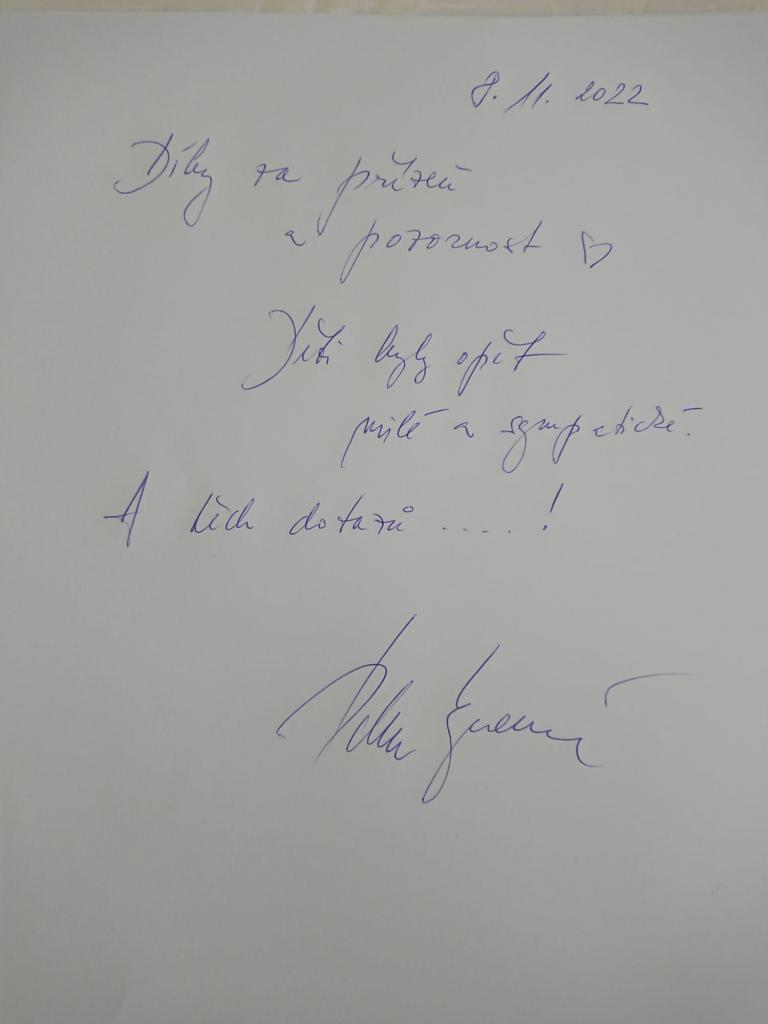 8. 11. 2022
Díky za přízeň
a pozornost ♡
Děti byly opět
milé a sympatické.
A těch dotazů ....!